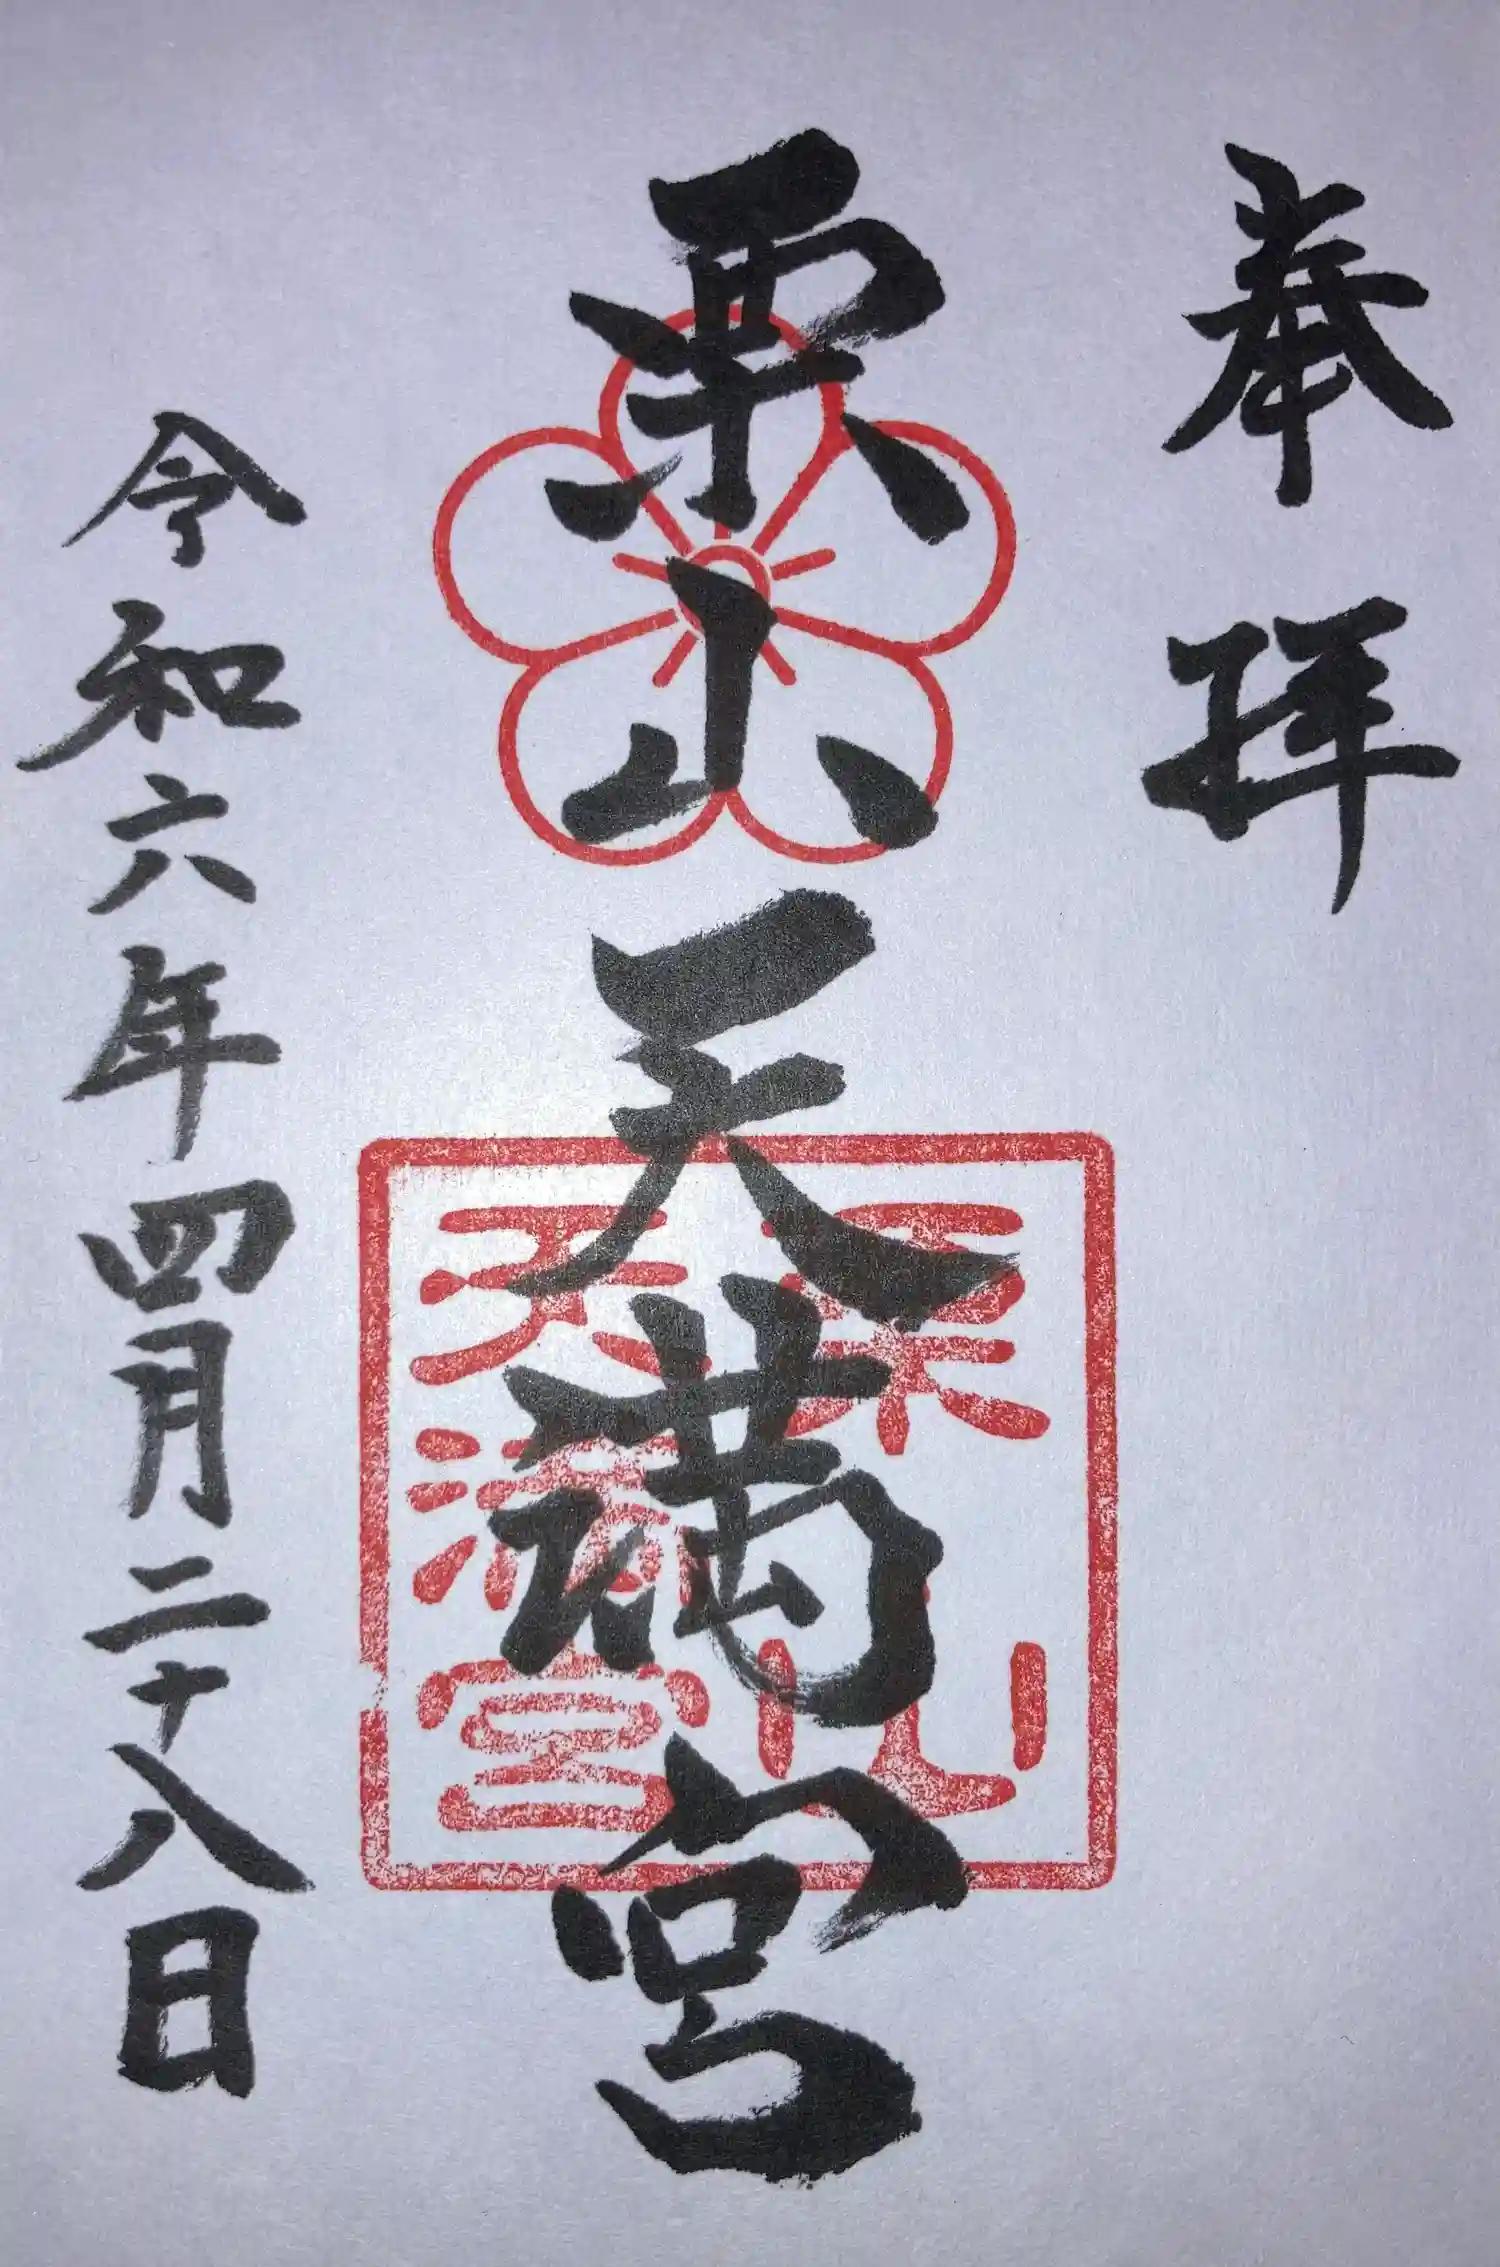 奉拝
栗山天満宮
栗山
天満宮
令和六年四月二十八日